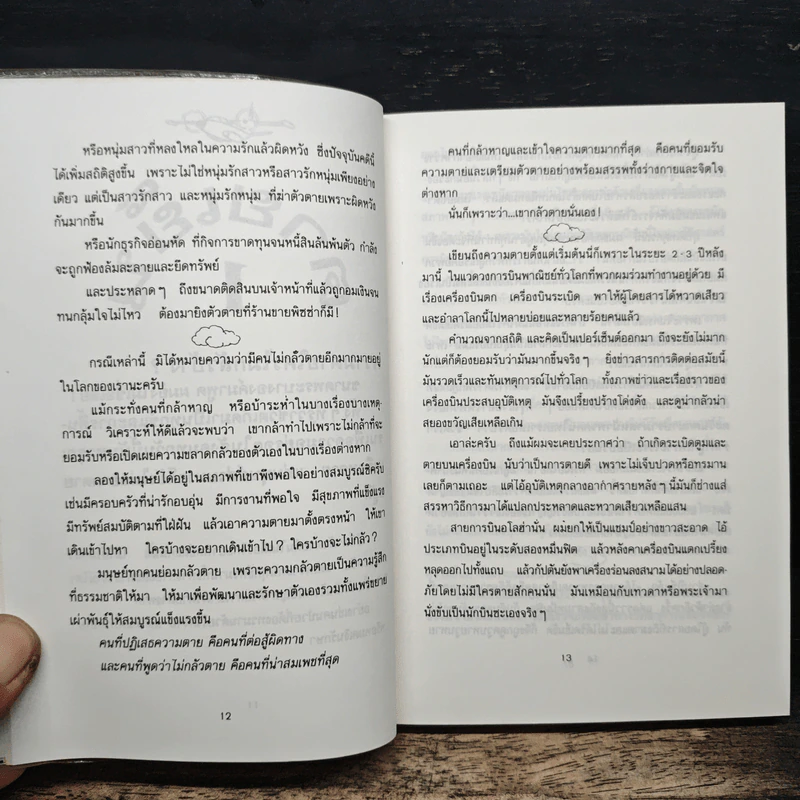 หรือหนุ่มสาวที่หลงใหลในความรักแล้วผิดหวัง ซึ่งปัจจุบันคดีนี้
ได้เพิ่มสถิติสูงขึ้น เพราะไม่ใช่หนุ่มรักสาวหรือสาวรักหนุ่มเพียงอย่าง
เดียว แต่เป็นสาวรักสาว และหนุ่มรักหนุ่ม ที่ฆ่าตัวตายเพราะผิดหวัง
กันมากขึ้น
หรือนักธุรกิจอ่อนหัด ที่กิจการขาดทุนจนหนี้สินล้นพ้นตัว กำลัง
จะถูกฟ้องล้มละลายและยึดทรัพย์
และประหลาดๆ ถึงขนาดติดสินบนเจ้าหน้าที่แล้วถูกอมเงินจน
ทนกลุ้มใจไม่ไหว ต้องมายิงตัวตายที่ร้านขายพิซซ่าก็มี!
กรณีเหล่านี้ มิได้หมายความว่ามีคนไม่กลัวตายอีกมากมายอยู่
ในโลกของเรานะครับ
แม้กระทั่งคนที่กล้าหาญ หรือบ้าระห่ำในบางเรื่องบางเหตุ-
การณ์ วิเคราะห์ให้ดีแล้วจะพบว่า เขากล้าทำไปเพราะไม่กล้าที่จะ
ยอมรับหรือเปิดเผยความขลาดกลัวของตัวเองในบางเรื่องต่างหาก
ลองให้มนุษย์ได้อยู่ในสภาพที่เขาพึงพอใจอย่างสมบูรณ์ซิครับ
เช่นมีครอบครัวที่น่ารักอบอุ่น มีการงานที่พอใจ มีสุขภาพที่แข็งแรง
มีทรัพย์สมบัติตามที่ใฝ่ฝัน แล้วเอาความตายมาตั้งตรงหน้า ให้เขา
เดินเข้าไปหา ใครบ้างจะอยากเดินเข้าไป? ใครบ้างจะไม่กลัว?
มนุษย์ทุกคนย่อมกลัวตาย เพราะความกลัวตายเป็นความรู้สึก
ที่ธรรมชาติให้มา ให้มาเพื่อพัฒนาและรักษาตัวเองรวมทั้งแพร่ขยาย
เผ่าพันธุ์ให้สมบูรณ์แข็งแรงขึ้น
คนที่ปฏิเสธความตาย คือคนที่ต่อสู้ผิดทาง
และคนที่พูดว่าไม่กลัวตาย คือคนที่น่าสมเพชที่สุด
12
คนที่กล้าหาญและเข้าใจความตายมากที่สุด คือคนที่ยอมรับ
ความตายและเตรียมตัวตายอย่างพร้อมสรรพทั้งร่างกายและจิตใจ
ต่างหาก
นั่นก็เพราะว่า...เขากลัวตายนั่นเอง!
เขียนถึงความตายตั้งแต่เริ่มต้นนี่ก็เพราะในระยะ 2-3 ปีหลัง
มานี้ ในแวดวงการบินพาณิชย์ทั่วโลกที่พวกผมร่วมทำงานอยู่ด้วย มี
เรื่องเครื่องบินตก เครื่องบินระเบิด พาให้ผู้โดยสารได้หวาดเสียว
และอำลาโลกนี้ไปหลายบ่อยและหลายร้อยคนแล้ว
คำนวณจากสถิติ และคิดเป็นเปอร์เซ็นต์ออกมา ถึงจะยังไม่มาก
นักแต่ก็ต้องยอมรับว่ามันมากขึ้นจริงๆ ยิ่งข่าวสารการติดต่อสมัยนี้
มันรวดเร็วและทันเหตุการณ์ไปทั่วโลก ทั้งภาพข่าวและเรื่องราวของ
เครื่องบินประสบอุบัติเหตุ มันจึงเปรี้ยงปร้างโด่งดัง และดูน่ากลัวน่า
สยองขวัญเสียเหลือเกิน
เอาล่ะครับ ถึงแม้ผมจะเคยประกาศว่า ถ้าเกิดระเบิดตูมและ
ตายบนเครื่องบิน นับว่าเป็นการตายดี เพราะไม่เจ็บปวดหรือทรมาน
เลยก็ตามเถอะ แต่ไอ้อุบัติเหตุกลางอากาศรายหลังๆ นี้มันก็ช่างแส่
สรรหาวิธีการมาได้แปลกประหลาดและหวาดเสียวเหลือแสน
สายการบินอโลฮ่านั่น ผมยกให้เป็นแชมป์อย่างขาวสะอาด ไอ้
ประเภทบินอยู่ในระดับสองหมื่นฟิต แล้วหลังคาเครื่องบินแตกเปรี้ยง
หลุดออกไปทั้งแถบ แล้วกัปตันยังพาเครื่องร่อนลงสนามได้อย่างปลอด-
ภัยโดยไม่มีใครตายสักคนนั่น มันเหมือนกับเทวดาหรือพระเจ้ามา
นั่งขับเป็นนักบินซะเองจริงๆ
13